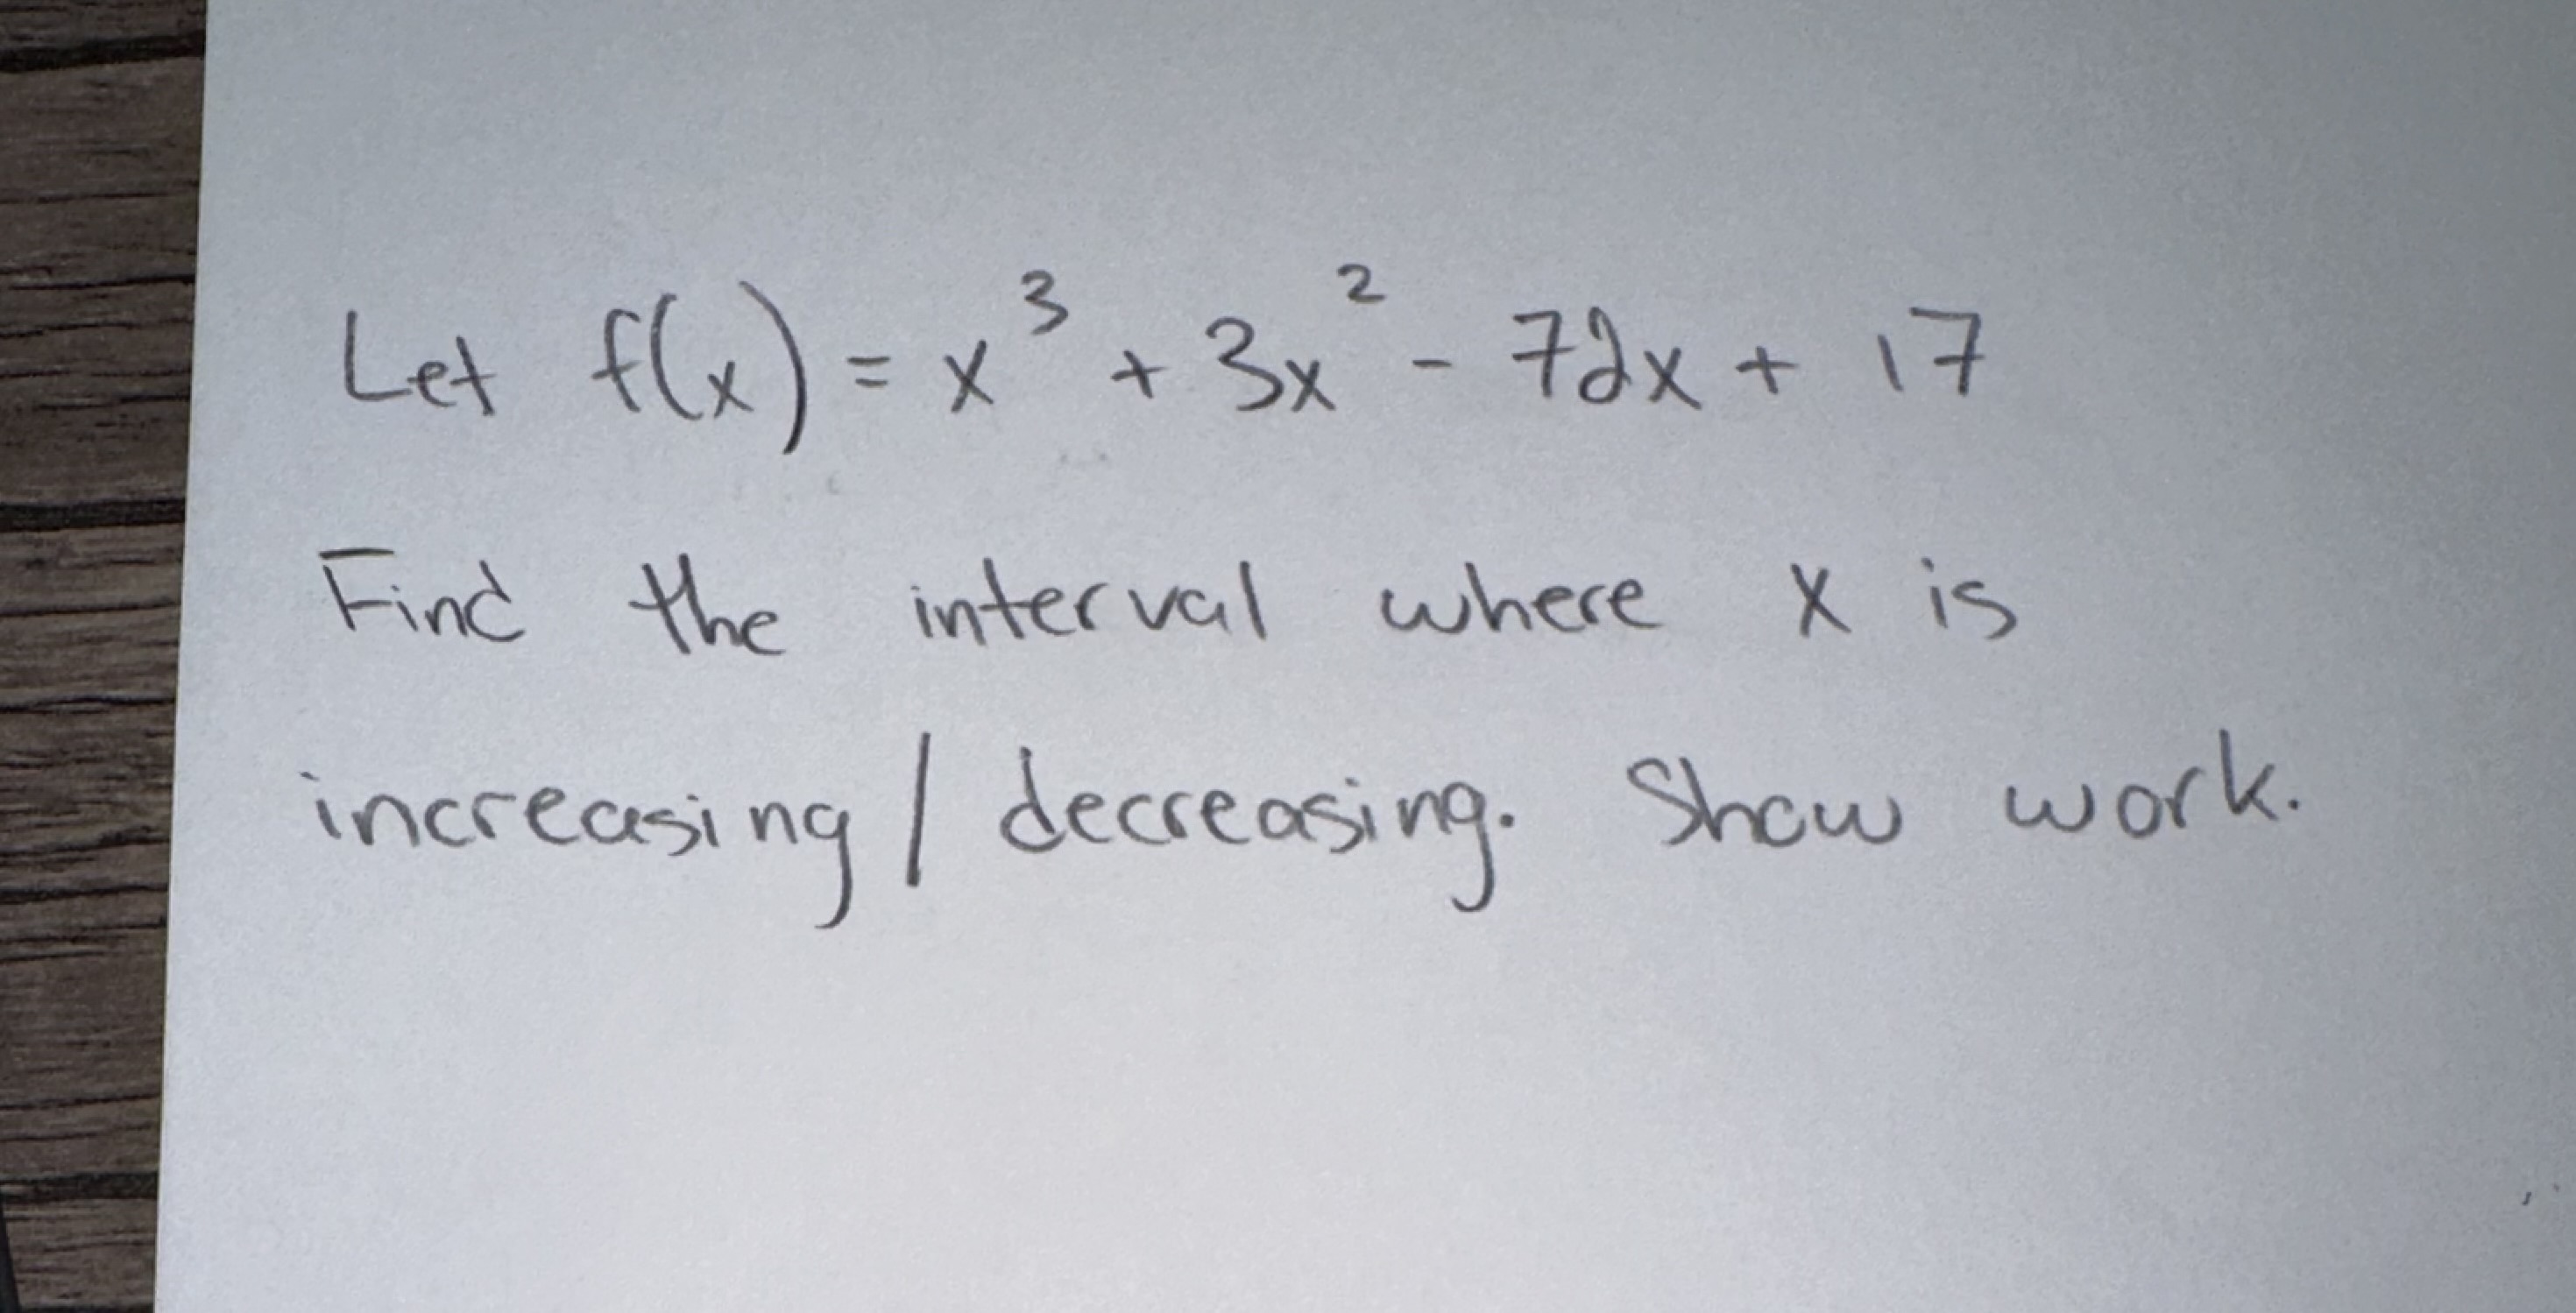 Let f(x) = x³ + 3x² - 72x + 17
Find the interval where x is
increasing / decreasing. Show work.